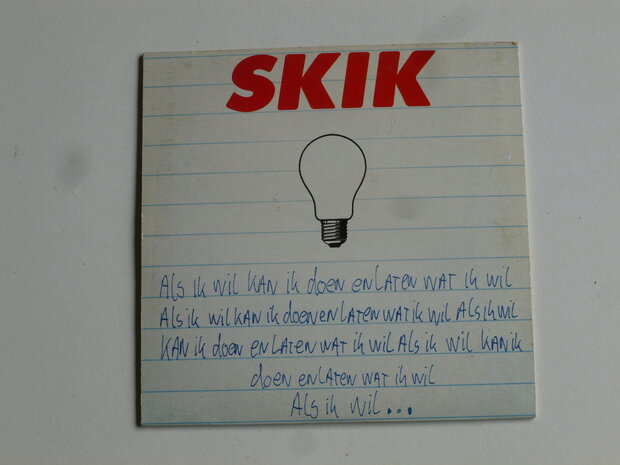 SKIK
Als ik wil kan ik doen en laten wat ik wil
Als ik wil kan ik doen en laten wat ik wil Als ik wil
kan ik doen en laten wat ik wil Als ik wil kan ik
doen en laten wat ik wil
Als ik wil...